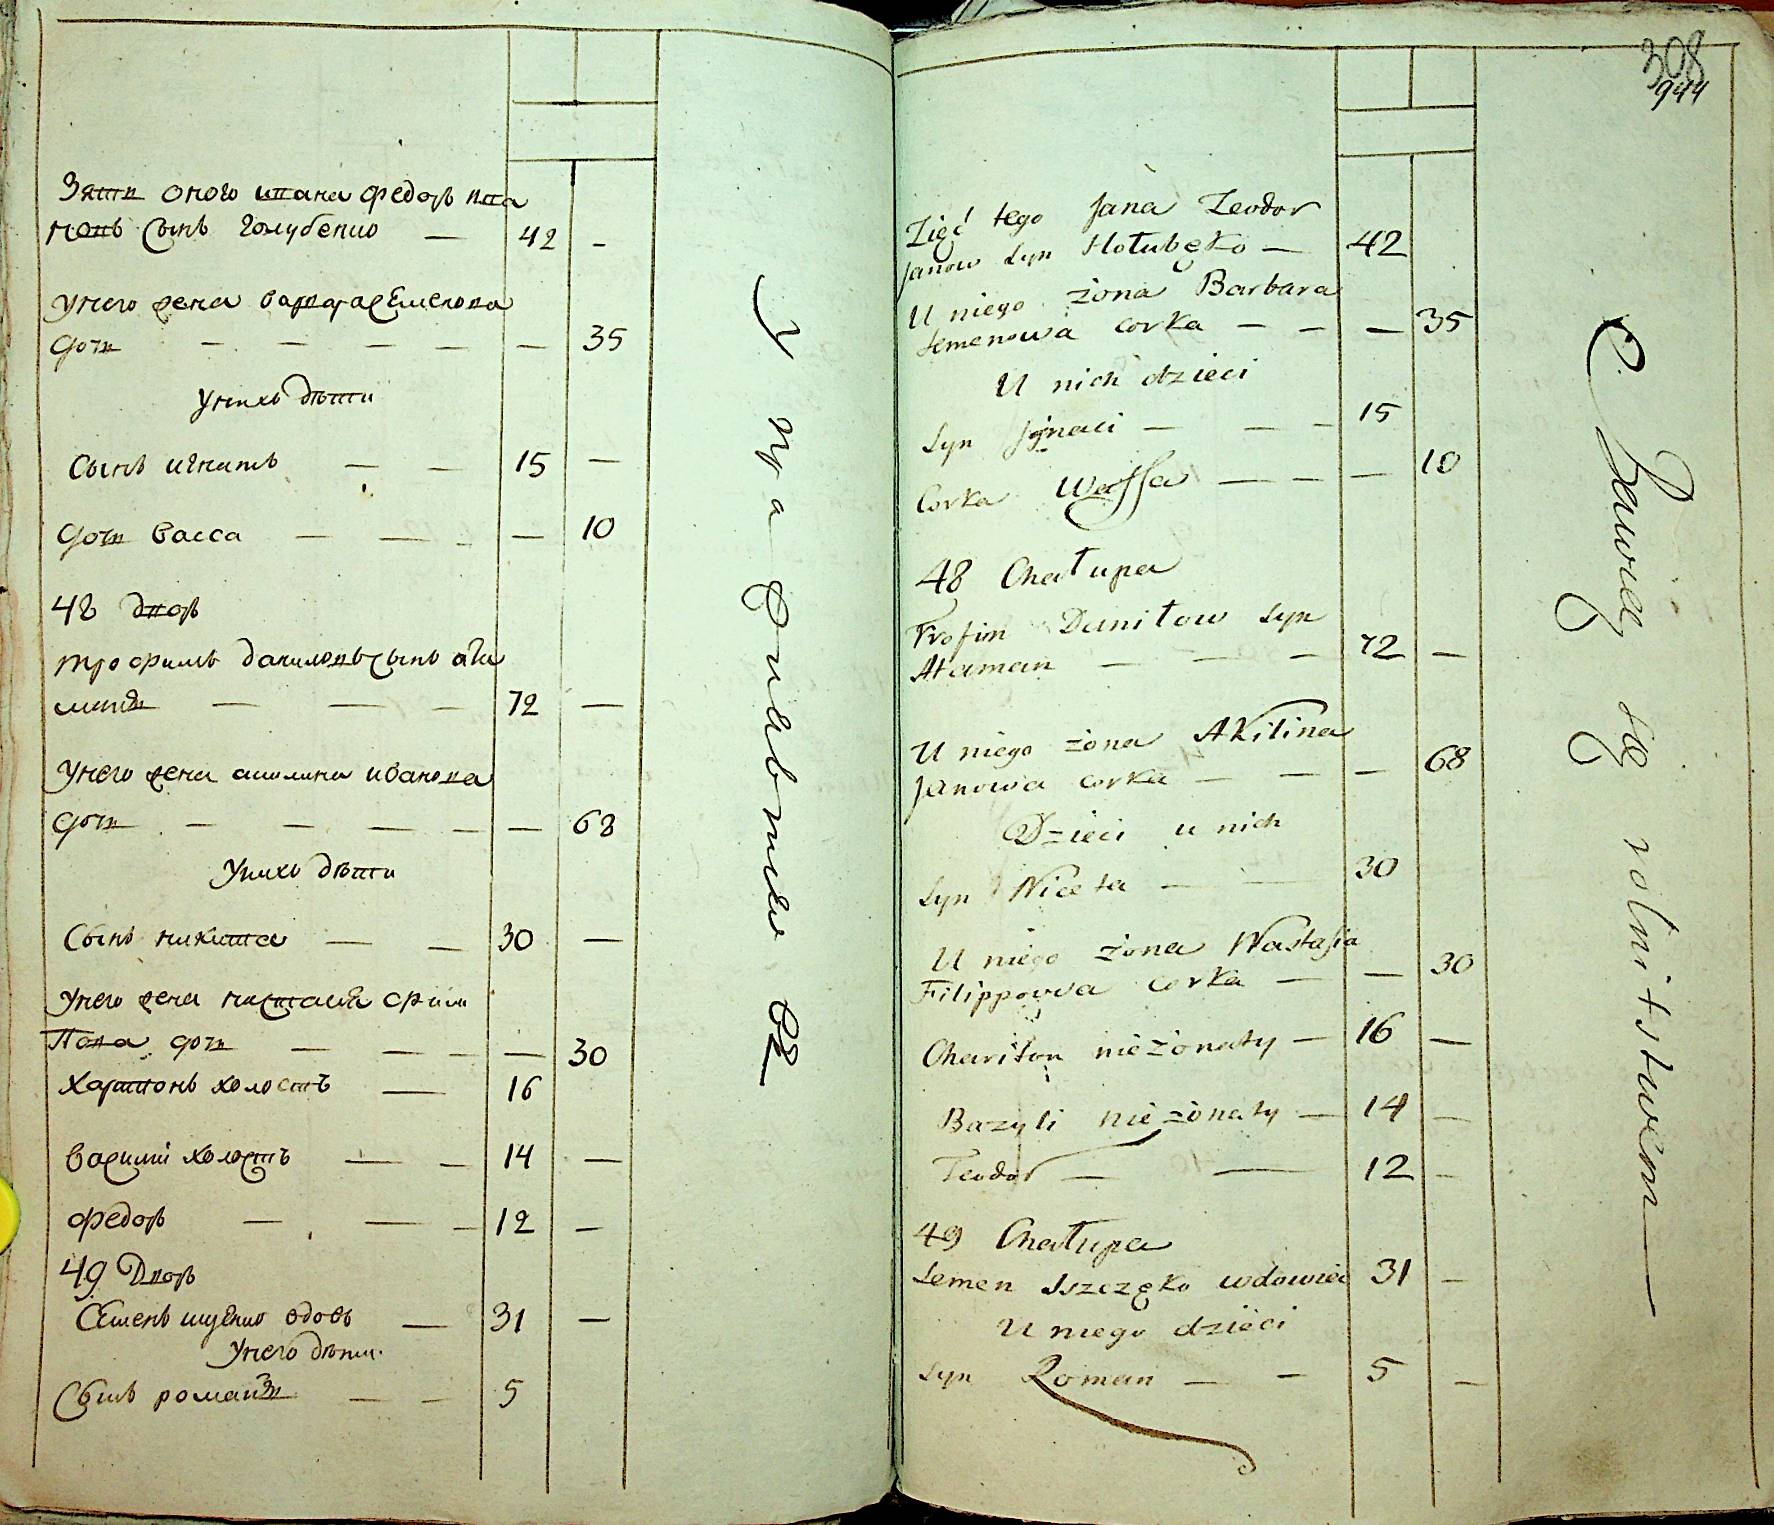 Зяти оного ивана федоръ ива
новъ сынъ голубенко — 42 —
унего жена варвара семенова
дочи — — — — — 35
унихъ дѣти
сынъ игнатъ — — 15 —
дочи васса — — — — 10
48 дворъ
трофимъ даниловъ сынъ ата
манъ — — — 72 —
унего жена акилина иванова
дочи — — — — — 68
унихъ дѣти
сынъ никита — — 30 —
унего жена настасия фили
пова дочи — — — — 30
харитонъ холостъ — 16
василий холостъ — — 14 —
федоръ — — — 12 —
49 Дворъ
Семенъ ищенко вдовъ — 31 —
унего дѣти
сынъ романъ — — 5
308
944
Zięć tego Jana Teodor
Janow syn Hołubęko — 42
U niego żona Barbara
Semenowa corka — — — 35
U nich dzieci
syn Jgnaci — — — 15
Corka Wassa — — — 10
48 Chałupa
Trofim Daniłow syn
Ataman — — — 72 —
U niego żona Akilina
Janowa corka — — — 68
Dzieci u nich
syn Niceta — — 30
U niego żona Nastasia
Filippowa corka — — 30
Chariton nieżonaty — 16 —
Bazyli nieżonaty — 14 —
Teodor — — 12 —
49 Chałupa
Semen Iszczęko wdowiec 31 —
U niego dzieci
syn Roman — — 5 —
Bawią się rolnitstwem —